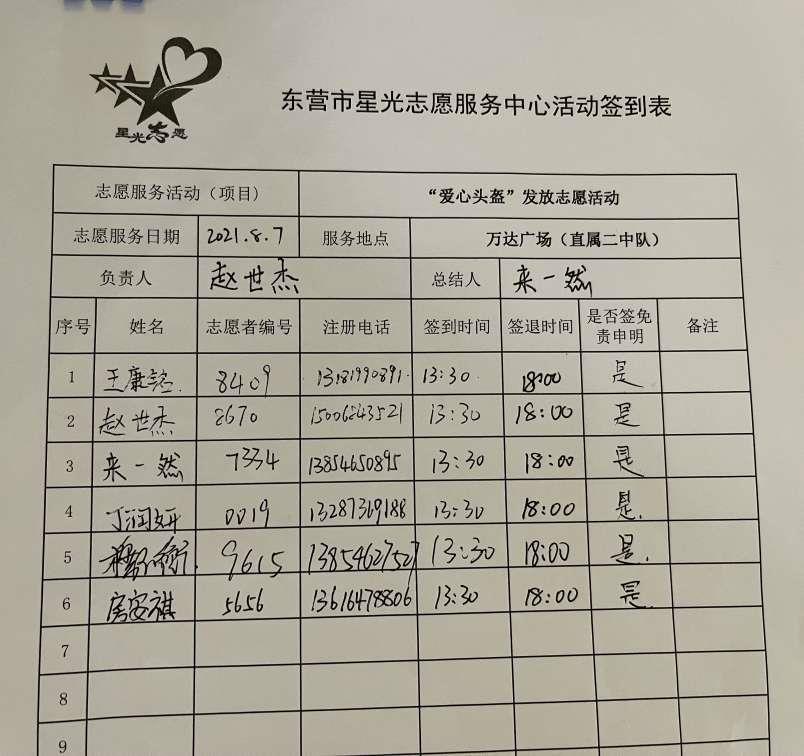 星光志愿
东营市星光志愿服务中心活动签到表
志愿服务活动（项目） “爱心头盔”发放志愿活动
志愿服务日期 2021.8.7 服务地点 万达广场（直属二中队）
负责人 赵世杰 总结人 来一然
序号 姓名 志愿者编号 注册电话 签到时间 签退时间 是否签免 备注
责申明
1 8409 13181990891 13:30 18:00 是
2 赵世杰 2670 15006243521 13:30 18:00 是
3 来一然 7334 13854650895 13:30 18:00 是
4 丁润妍 0019 13287319188 13:30 18:00 是.
5 9615 13854627527 13:30 18:00 是.
6 房安祺 5656 13616478806 13:30 18:00 是.
7
8
9